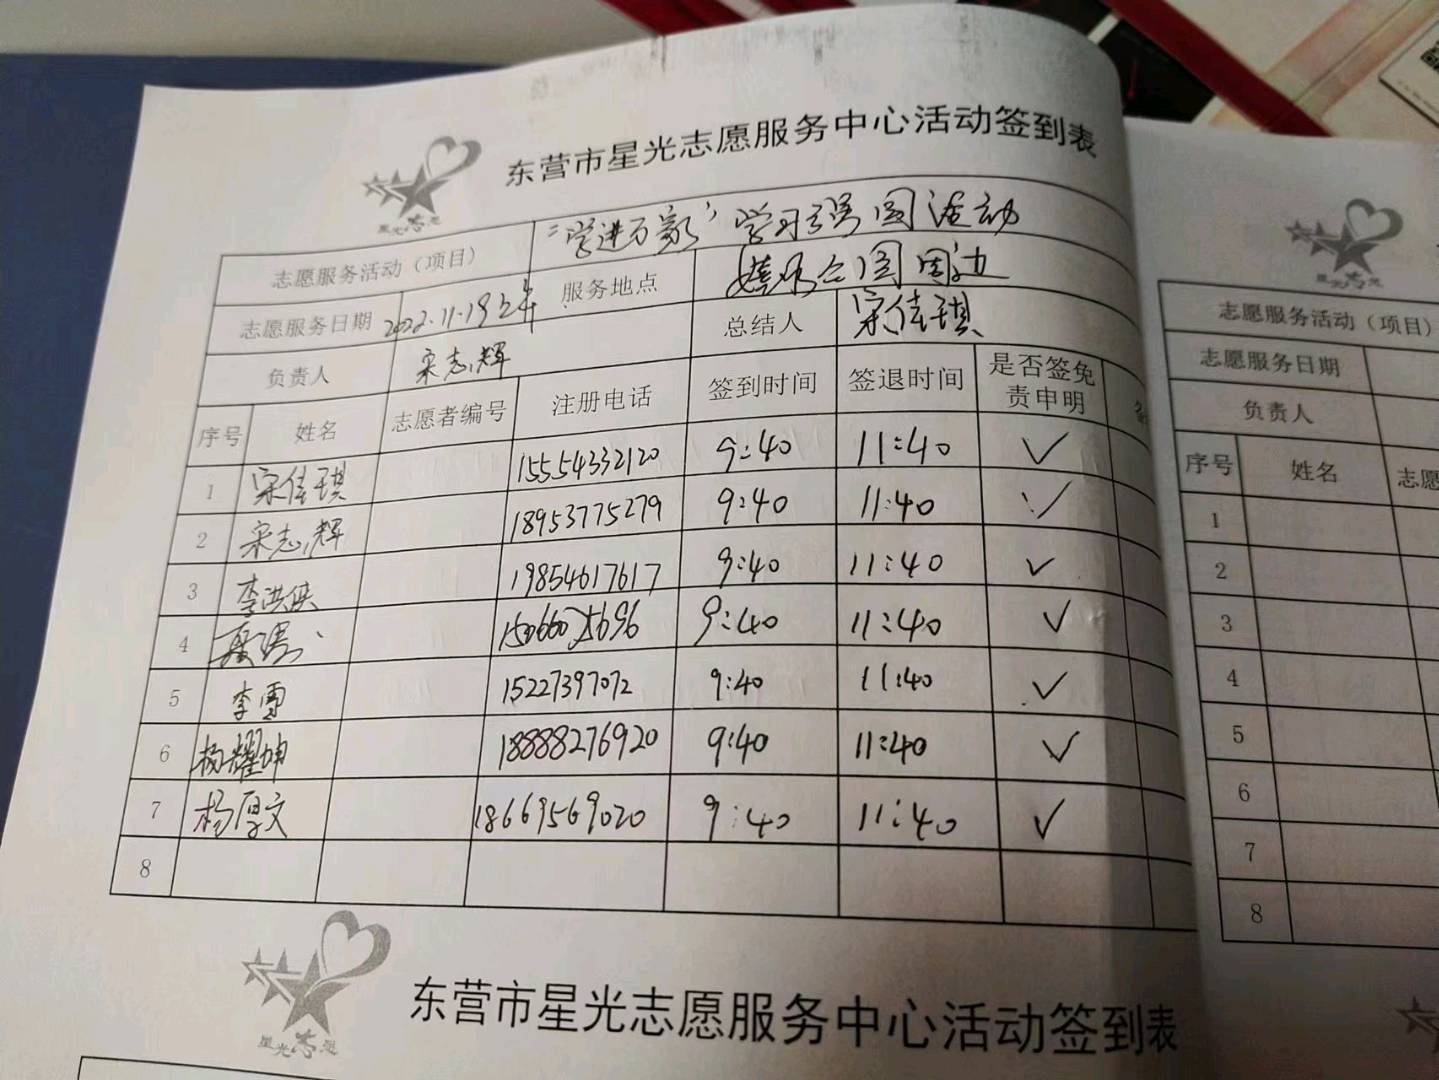 东营市星光志愿服务中心活动签到表
星光志愿
志愿服务活动（项目） “学进万家”学习强国活动
志愿服务日期 2022.11.19上午 服务地点 公园周边
负责人 宋志辉 总结人 宋佳琪
序号 姓名 志愿者编号 注册电话 签到时间 签退时间 是否签免责申明 备
1 宋佳琪 15554332120 9:40 11:40 ✓
2 宋志辉 18953775279 9:40 11:40 ✓
3 李洪侠 19854617617 9:40 11:40 ✓
4 9:40 11:40 ✓
5 李雪 15227397072 9:40 11:40 ✓
6 杨耀坤 18888276920 9:40 11:40 ✓
7 杨厚文 18669569020 9:40 11:40 ✓
8
星光志愿
东营市星光志愿服务中心活动签到表
星光志愿
志愿服务活动（项目）
志愿服务日期
负责人
序号 姓名 志愿
1
2
3
4
5
6
7
8